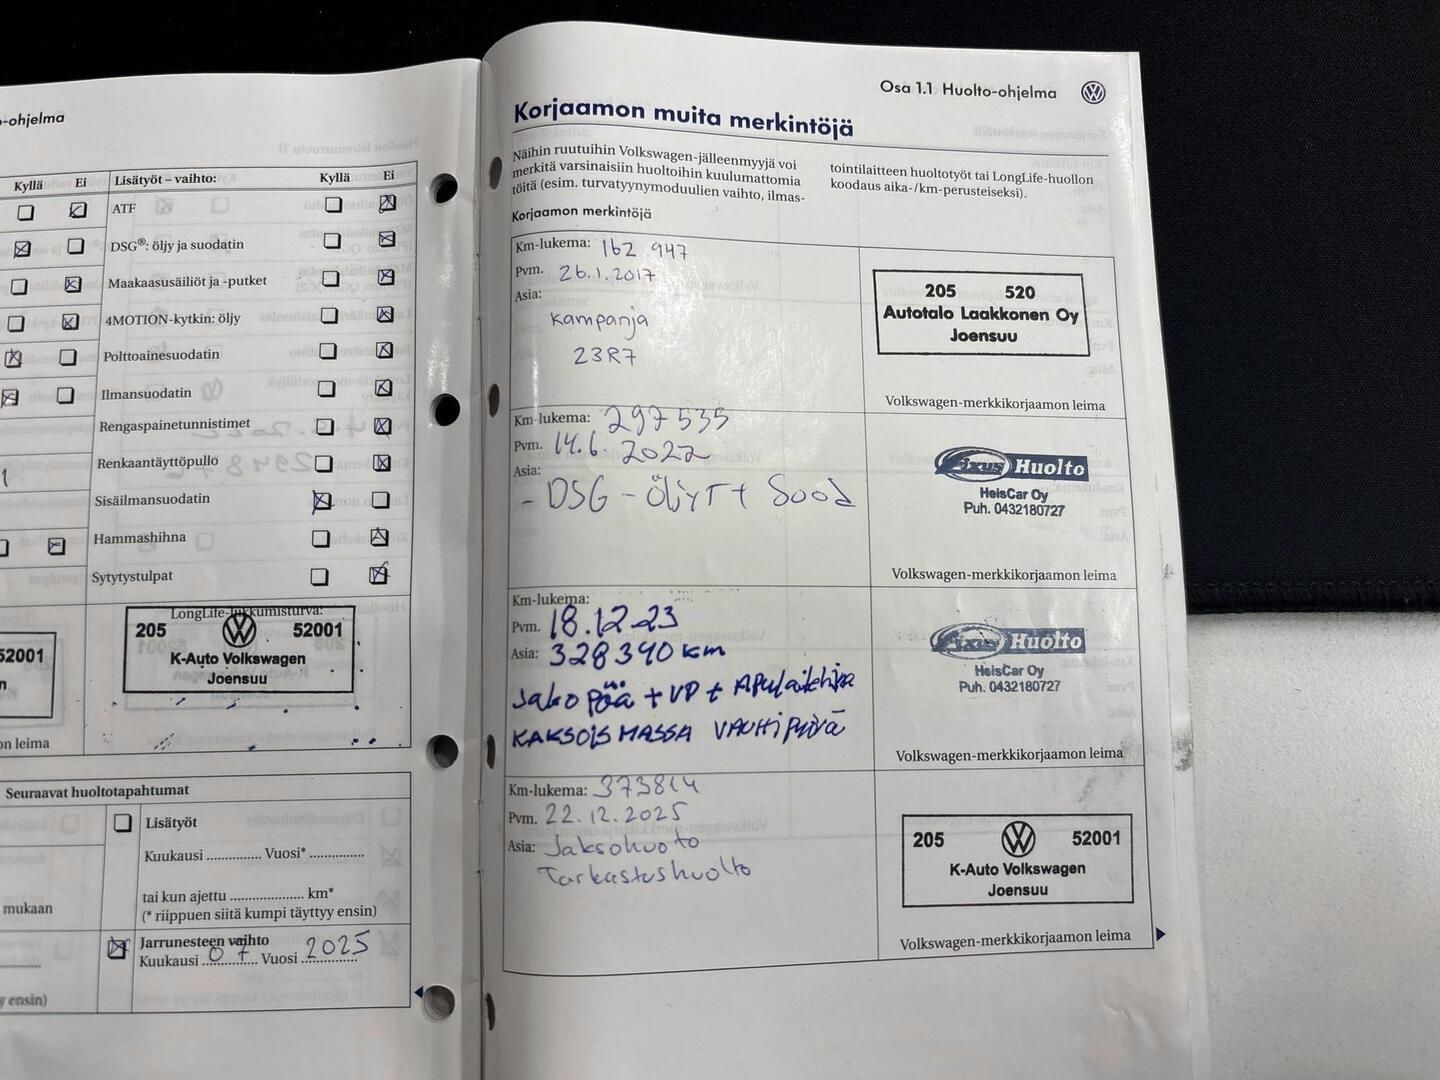 -ohjelma
Kyllä Ei Lisätyöt – vaihto: Kyllä Ei
ATF
DSG®: öljy ja suodatin
Maakaasusäiliöt ja -putket
4MOTION-kytkin: öljy
Polttoainesuodatin
Ilmansuodatin
Rengaspainetunnistimet
Renkaantäyttöpullo
Sisäilmansuodatin
Hammashihna
Sytytystulpat
LongLife-liikkumisturva:
205 52001
K-Auto Volkswagen
Joensuu
52001
n
on leima
Seuraavat huoltotapahtumat
Lisätyöt
Kuukausi .............. Vuosi* ..............
mukaan
tai kun ajettu .................... km*
(* riippuen siitä kumpi täyttyy ensin)
Jarrunesteen vaihto
Kuukausi 07 Vuosi 2025
y ensin)
Osa 1.1 Huolto-ohjelma
Korjaamon muita merkintöjä
Näihin ruutuihin Volkswagen-jälleenmyyjä voi
merkitä varsinaisiin huoltoihin kuulumattomia
töitä (esim. turvatyynymoduulien vaihto, ilmas-
tointilaitteen huoltotyöt tai LongLife-huollon
koodaus aika-/km-perusteiseksi).
Korjaamon merkintöjä
Km-lukema: 162 947
Pvm. 26.1.2017
Asia:
Kampanja
23R7
205 520
Autotalo Laakkonen Oy
Joensuu
Volkswagen-merkkikorjaamon leima
Km-lukema: 297 535
Pvm. 14.6.2022
Asia:
- DSG - Öljyt + Suod
Fixus Huolto
HeisCar Oy
Puh. 0432180727
Volkswagen-merkkikorjaamon leima
Km-lukema:
Pvm. 18.12.23
Asia: 328390 km
Jakopää + VP + Apulaitehihna
KAKSOISMASSA VAUHTIPYÖRÄ
Fixus Huolto
HeisCar Oy
Puh. 0432180727
Volkswagen-merkkikorjaamon leima
Km-lukema: 373814
Pvm. 22.12.2025
Asia: Jaksohuolto
Tarkastushuolto
205 52001
K-Auto Volkswagen
Joensuu
Volkswagen-merkkikorjaamon leima